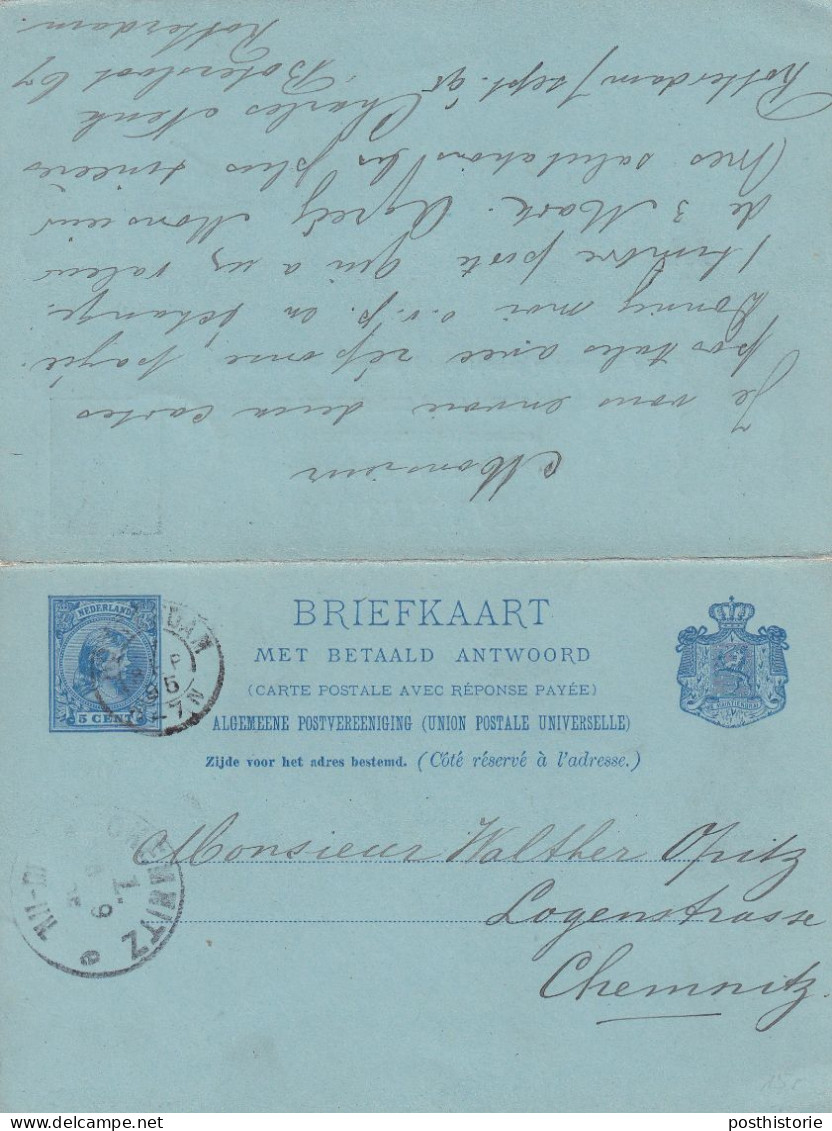 Monsieur
Je vous envoie deux cartes
postales avec réponse payée.
Donnez moi s.v.p. en échange
1 timbre poste qui a un valeur
de 3 Mark. Agreéz Monsieur
Mes salutations les plus sincères
Charles
Rotterdam / sept. 95
67
Rotterdam.
NEDERLAND
5 CENT
DAM
95
BRIEFKAART
MET BETAALD ANTWOORD
(CARTE POSTALE AVEC RÉPONSE PAYÉE)
ALGEMEENE POSTVEREENIGING (UNION POSTALE UNIVERSELLE)
Zijde voor het adres bestemd. (Côté réservé à l'adresse.)
CHEMNITZ
Monsieur Walther Opitz
Logenstrasse
Chemnitz.
posthistorie